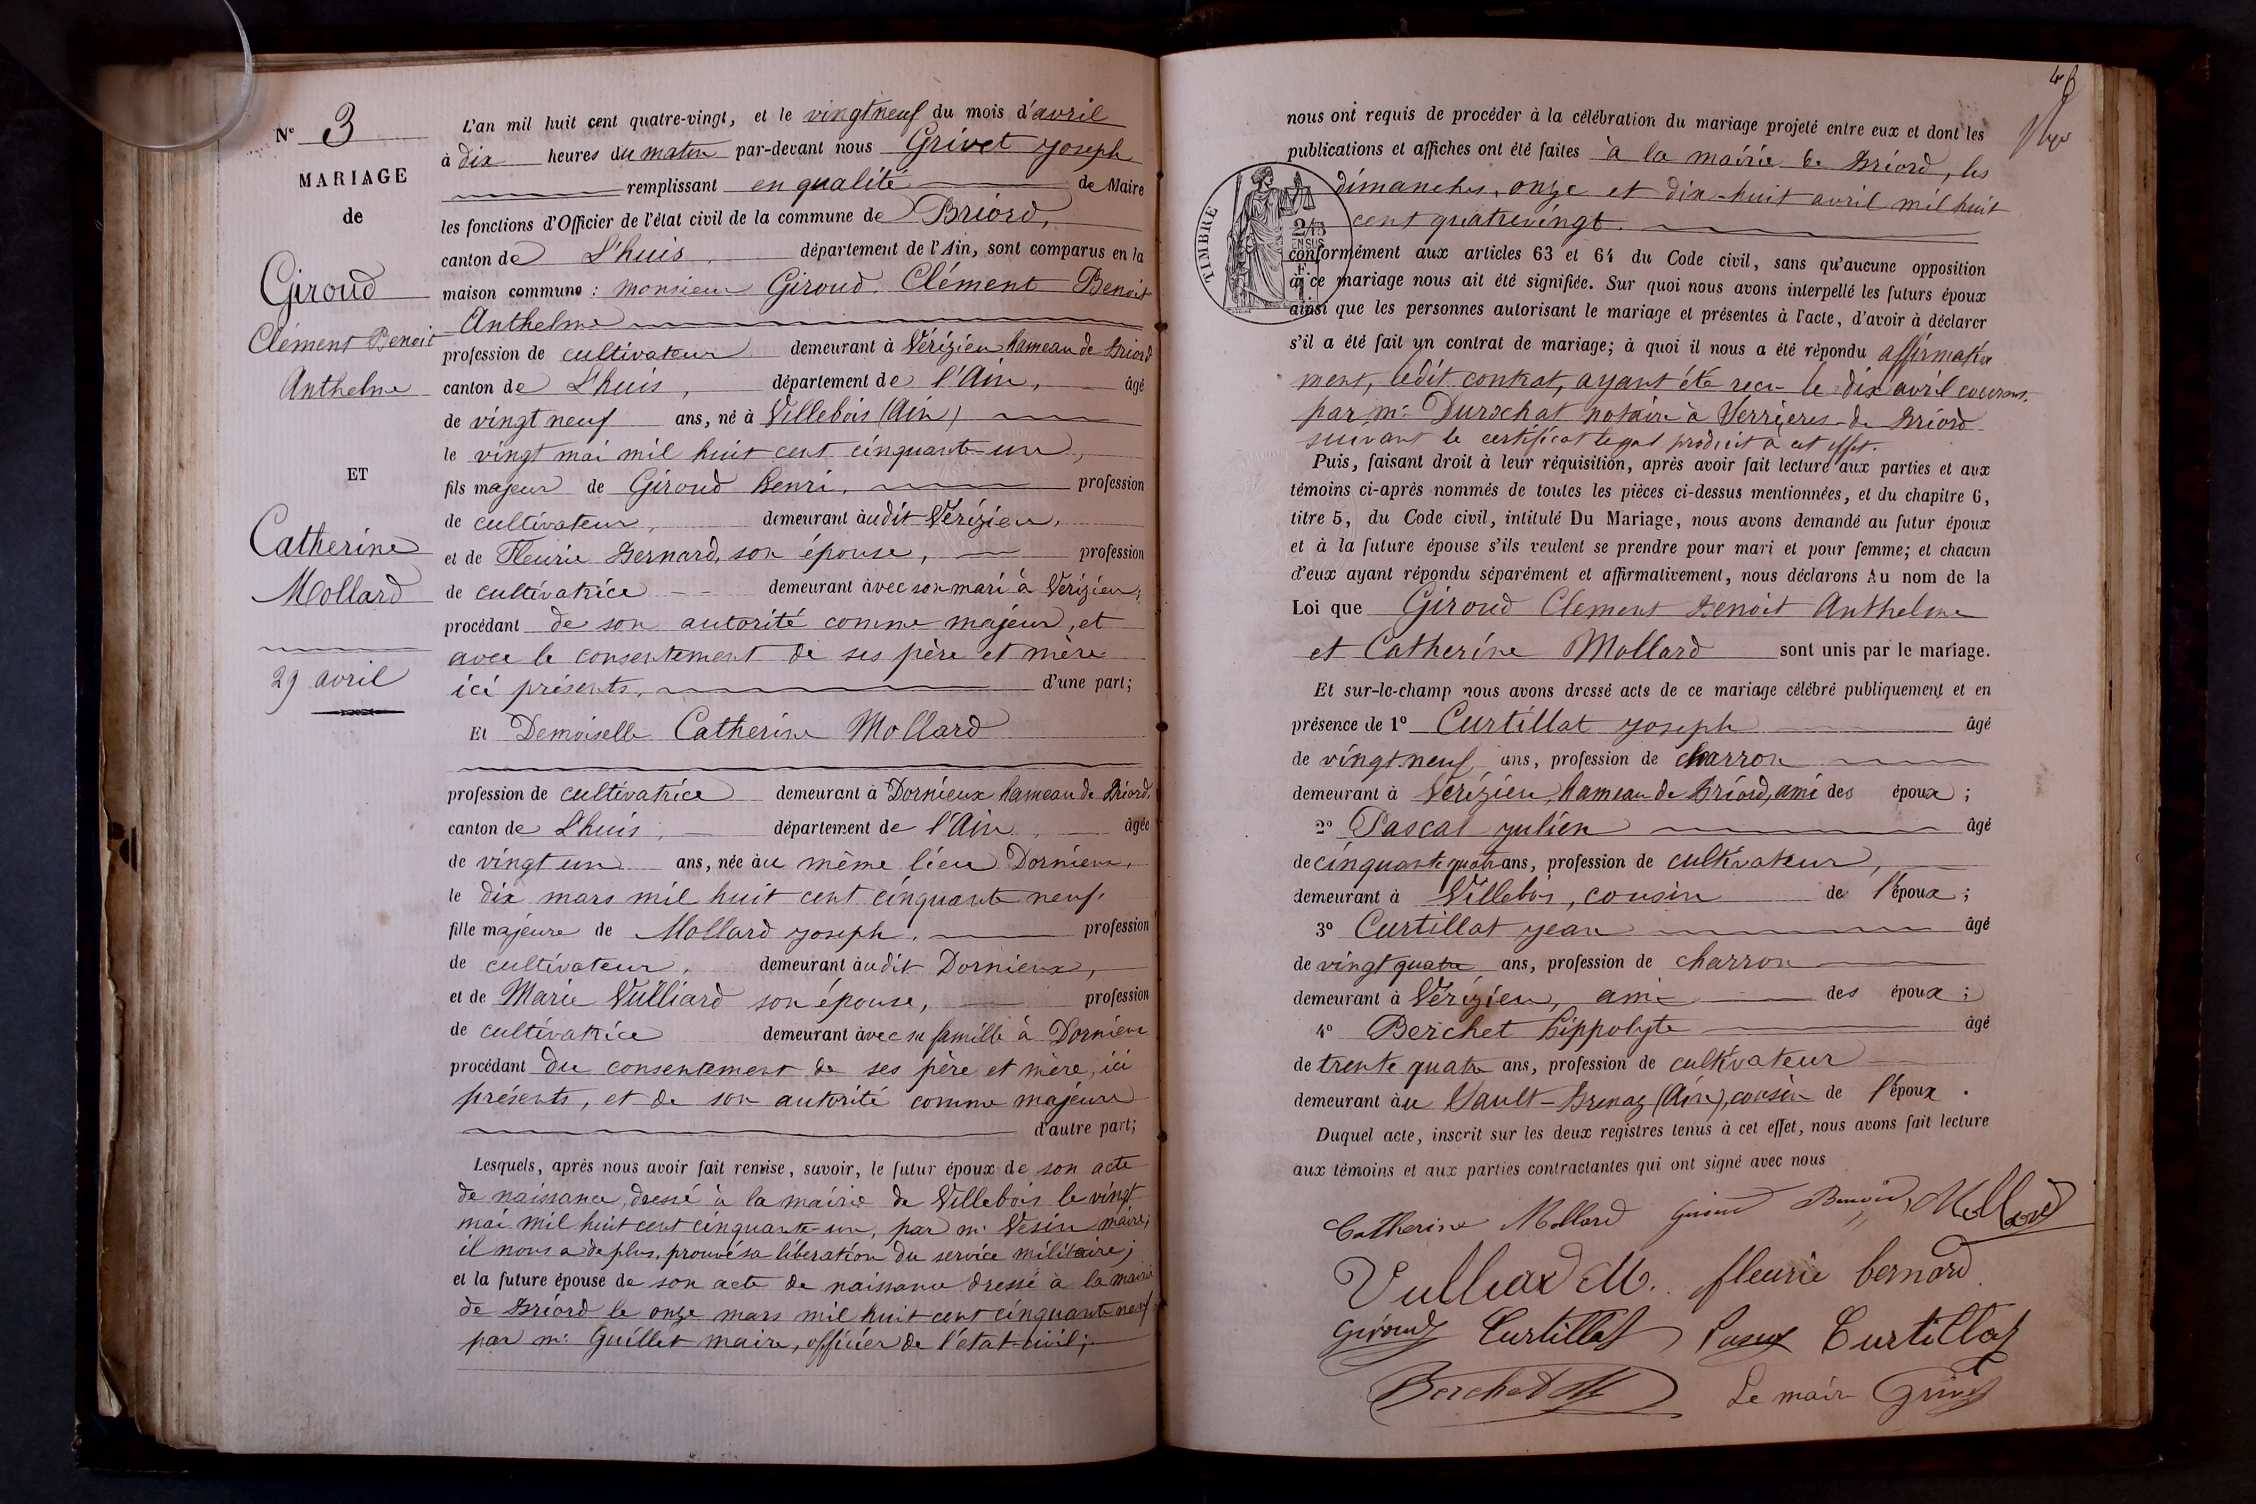 Nº 3
MARIAGE
de
Giroud
Clément Benoit
Anthelme
ET
Catherine
Mollard
29 avril
L'an mil huit cent quatre-vingt, et le vingt neuf du mois d'avril
à dix heures du matin par-devant nous Grivet Joseph
remplissant en qualité de Maire
les fonctions d'Officier de l'état civil de la commune de Briord,
canton de L'huis, département de l'Ain, sont comparus en la
maison commune : monsieur Giroud Clément Benoit
Anthelme
profession de cultivateur demeurant à Vérizieu hameau de Briord
canton de L'huis, département de l'Ain, âgé
de vingt neuf ans, né à Villebois (Ain)
le vingt mai mil huit cent cinquante-un,
fils majeur de Giroud henri, profession
de cultivateur, demeurant audit Vérizieu,
et de Fleurie Bernard, son épouse, profession
de cultivatrice demeurant avec son mari à Vérizieu;
procédant de son autorité comme majeur, et
avec le consentement de ses père et mère
ici présents, d'une part;
Et Demoiselle Catherine Mollard
profession de cultivatrice demeurant à Dornieux hameau de Briord,
canton de L'huis, département de l'Ain, âgée
de vingt un ans, née au même lieu Dornieux,
le dix mars mil huit cent cinquante neuf,
fille majeure de Mollard Joseph, profession
de cultivateur, demeurant audit Dornieux,
et de Marie Vulliard son épouse, profession
de cultivatrice demeurant avec sa famille à Dornieux
procédant du consentement de ses père et mère, ici
présents, et de son autorité comme majeure
d'autre part;
Lesquels, après nous avoir fait remise, savoir, le futur époux de son acte
de naissance, dressé à la mairie de Villebois le vingt
mai mil huit cent cinquante-un, par mr Vesin maire;
il nous a de plus, prouvé sa libération du service militaire;
et la future épouse de son acte de naissance dressé à la mairie
de Briord le onze mars mil huit cent cinquante neuf
par mr Guillet maire, officier de l'état-civil;
nous ont requis de procéder à la célébration du mariage projeté entre eux et dont les
publications et affiches ont été faites à la mairie de Briord, les
dimanches, onze et dix-huit avril mil huit
cent quatrevingt.
TIMBRE
conformément aux articles 63 et 64 du Code civil, sans qu'aucune opposition
à ce mariage nous ait été signifiée. Sur quoi nous avons interpellé les futurs époux
ainsi que les personnes autorisant le mariage et présentes à l'acte, d'avoir à déclarer
s'il a été fait un contrat de mariage; à quoi il nous a été répondu affirmative
ment, ledit contrat, ayant été reçu le dix avril courant,
par mr Durochat notaire à Verrières-de Briord
suivant le certificat légal produit à cet effet.
Puis, faisant droit à leur réquisition, après avoir fait lecture aux parties et aux
témoins ci-après nommés de toutes les pièces ci-dessus mentionnées, et du chapitre 6,
titre 5, du Code civil, intitulé Du Mariage, nous avons demandé au futur époux
et à la future épouse s'ils veulent se prendre pour mari et pour femme; et chacun
d'eux ayant répondu séparément et affirmativement, nous déclarons Au nom de la
Loi que Giroud Clement Benoit Anthelme
et Catherine Mollard sont unis par le mariage.
Et sur-le-champ nous avons dressé acte de ce mariage célébré publiquement et en
présence de 1º Curtillat Joseph âgé
de vingt neuf ans, profession de charron
demeurant à Vérizieu, hameau de Briord, ami des époux ;
2º Pascal Julien âgé
de cinquante quatre ans, profession de cultivateur,
demeurant à Villebois, cousin de l'époux ;
3º Curtillat Jean âgé
de vingt quatre ans, profession de charron
demeurant à Vérizieu, ami des époux ;
4º Berchet hippolyte âgé
de trente quatre ans, profession de cultivateur
demeurant au Sault-Brenaz (Ain), cousin de l'époux .
Duquel acte, inscrit sur les deux registres tenus à cet effet, nous avons fait lecture
aux témoins et aux parties contractantes qui ont signé avec nous
Catherine Mollard Giroud Benoit Mollard
Vulliard M. fleurie bernard
Giroud Curtillat Pascal Curtillat
Berchet Le maire Grivet